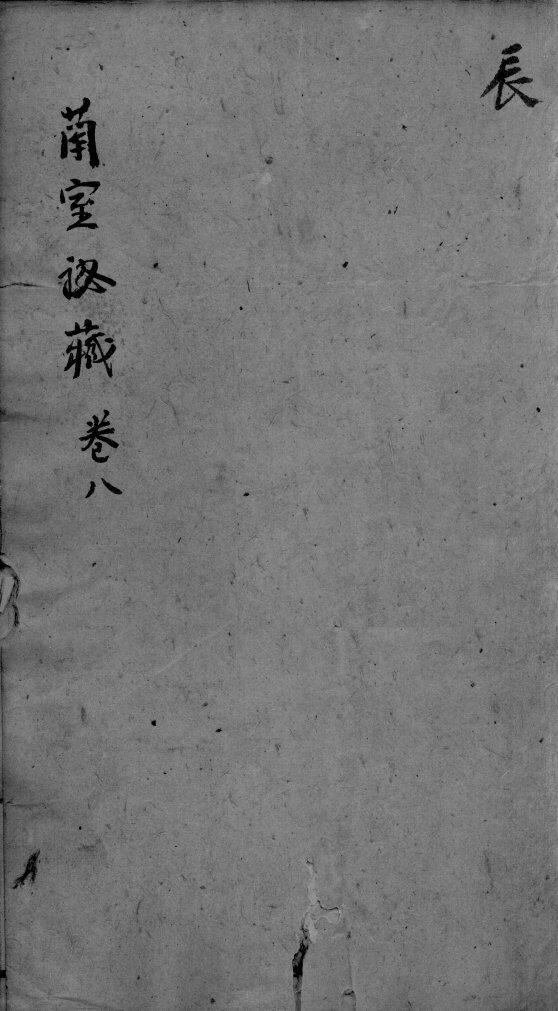 辰
蘭室秘藏 卷八